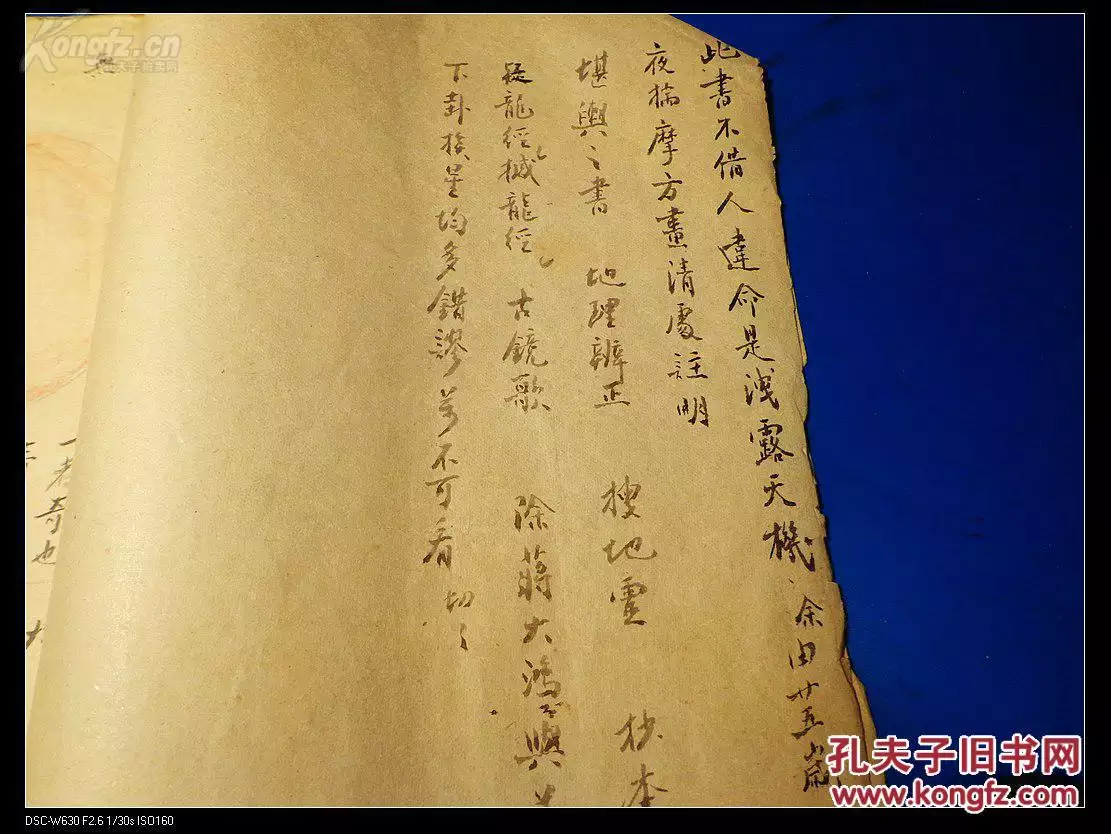 此書不借人違命是洩露天機 余由廿五歲
夜揣摩方畫清處註明
堪輿之書 地理辨正 搜地靈 抄本
疑龍經撼龍經 古鏡歌 除蔣大鴻與
下卦挨星均多錯謬萬不可看 切々
一者奇也
Kongfz.cn
孔夫子旧书网
www.kongfz.com
DSC-W630 F2.6 1/30s ISO160